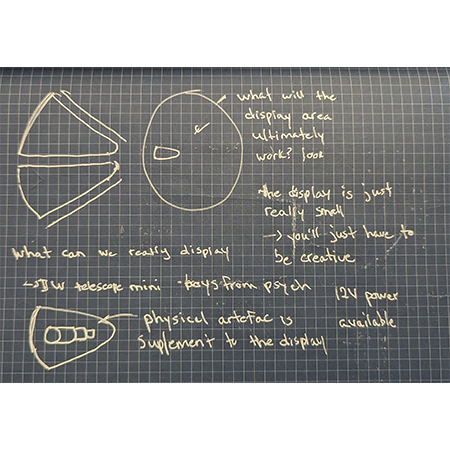 what will the
display area
ultimately
work? look
the display is just
really small
→ you'll just have to
be creative
What can we really display
telescope mini - boys from psych
12V power
available
physical artefac is
suplement to the display